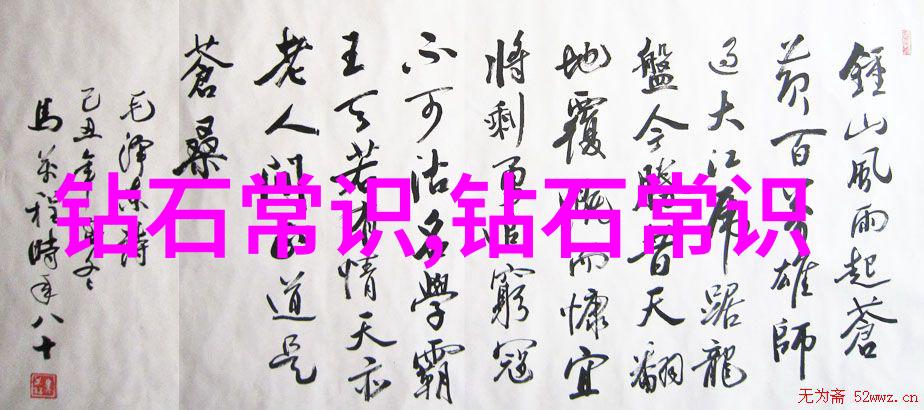 鍾山風雨起蒼
黄百萬雄師
过大江虎踞龍
盤今勝昔天翻
地覆慨而慷宜
將剩勇追窮寇
不可沽名學霸
王天若有情天亦
老人間正道是
蒼桑
毛澤东詩
己丑冬
馬萬程時年八十
钻石常识,钻石常识
无为斋 52wwz.cn